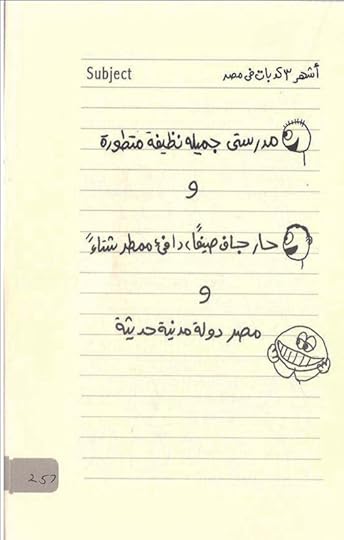 Subject
أشهر ٣ كدبات فى مصر
مدرستى جميله نظيفة متطورة
و
حار جاف صيفاً، دافئ ممطر شتاءً
و
مصر دولة مدنية حديثة
257